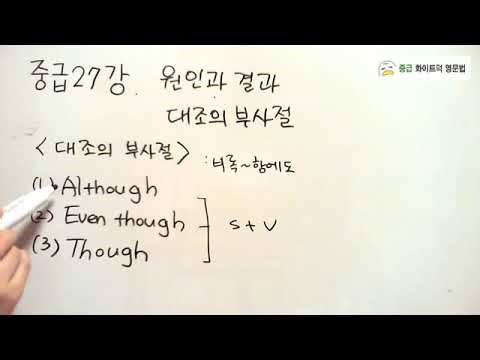 중급 화이트덕 영문법
중급27강. 원인과 결과
대조의 부사절
<대조의 부사절> : 비록~함에도
(1) Although
(2) Even though
(3) Though
S+V